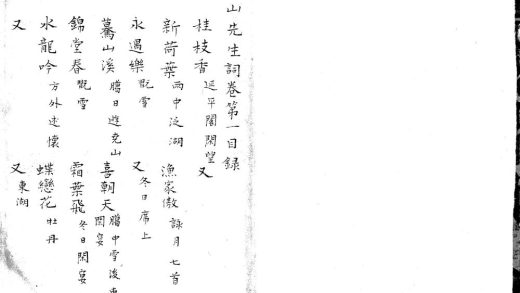 山先生詞卷第一目録
桂枝香 延平閣閑望 又
新荷葉 雨中泛湖 漁家傲 詠月七首
永遇樂 翫雪 又 冬日席上
驀山溪 臘日遊堯山 喜朝天 臘中雪後 閑宴
錦堂春 翫雪 霜葉飛 冬日閑宴
水龍吟 方外述懷 蝶戀花 牡丹
又 又 東湖